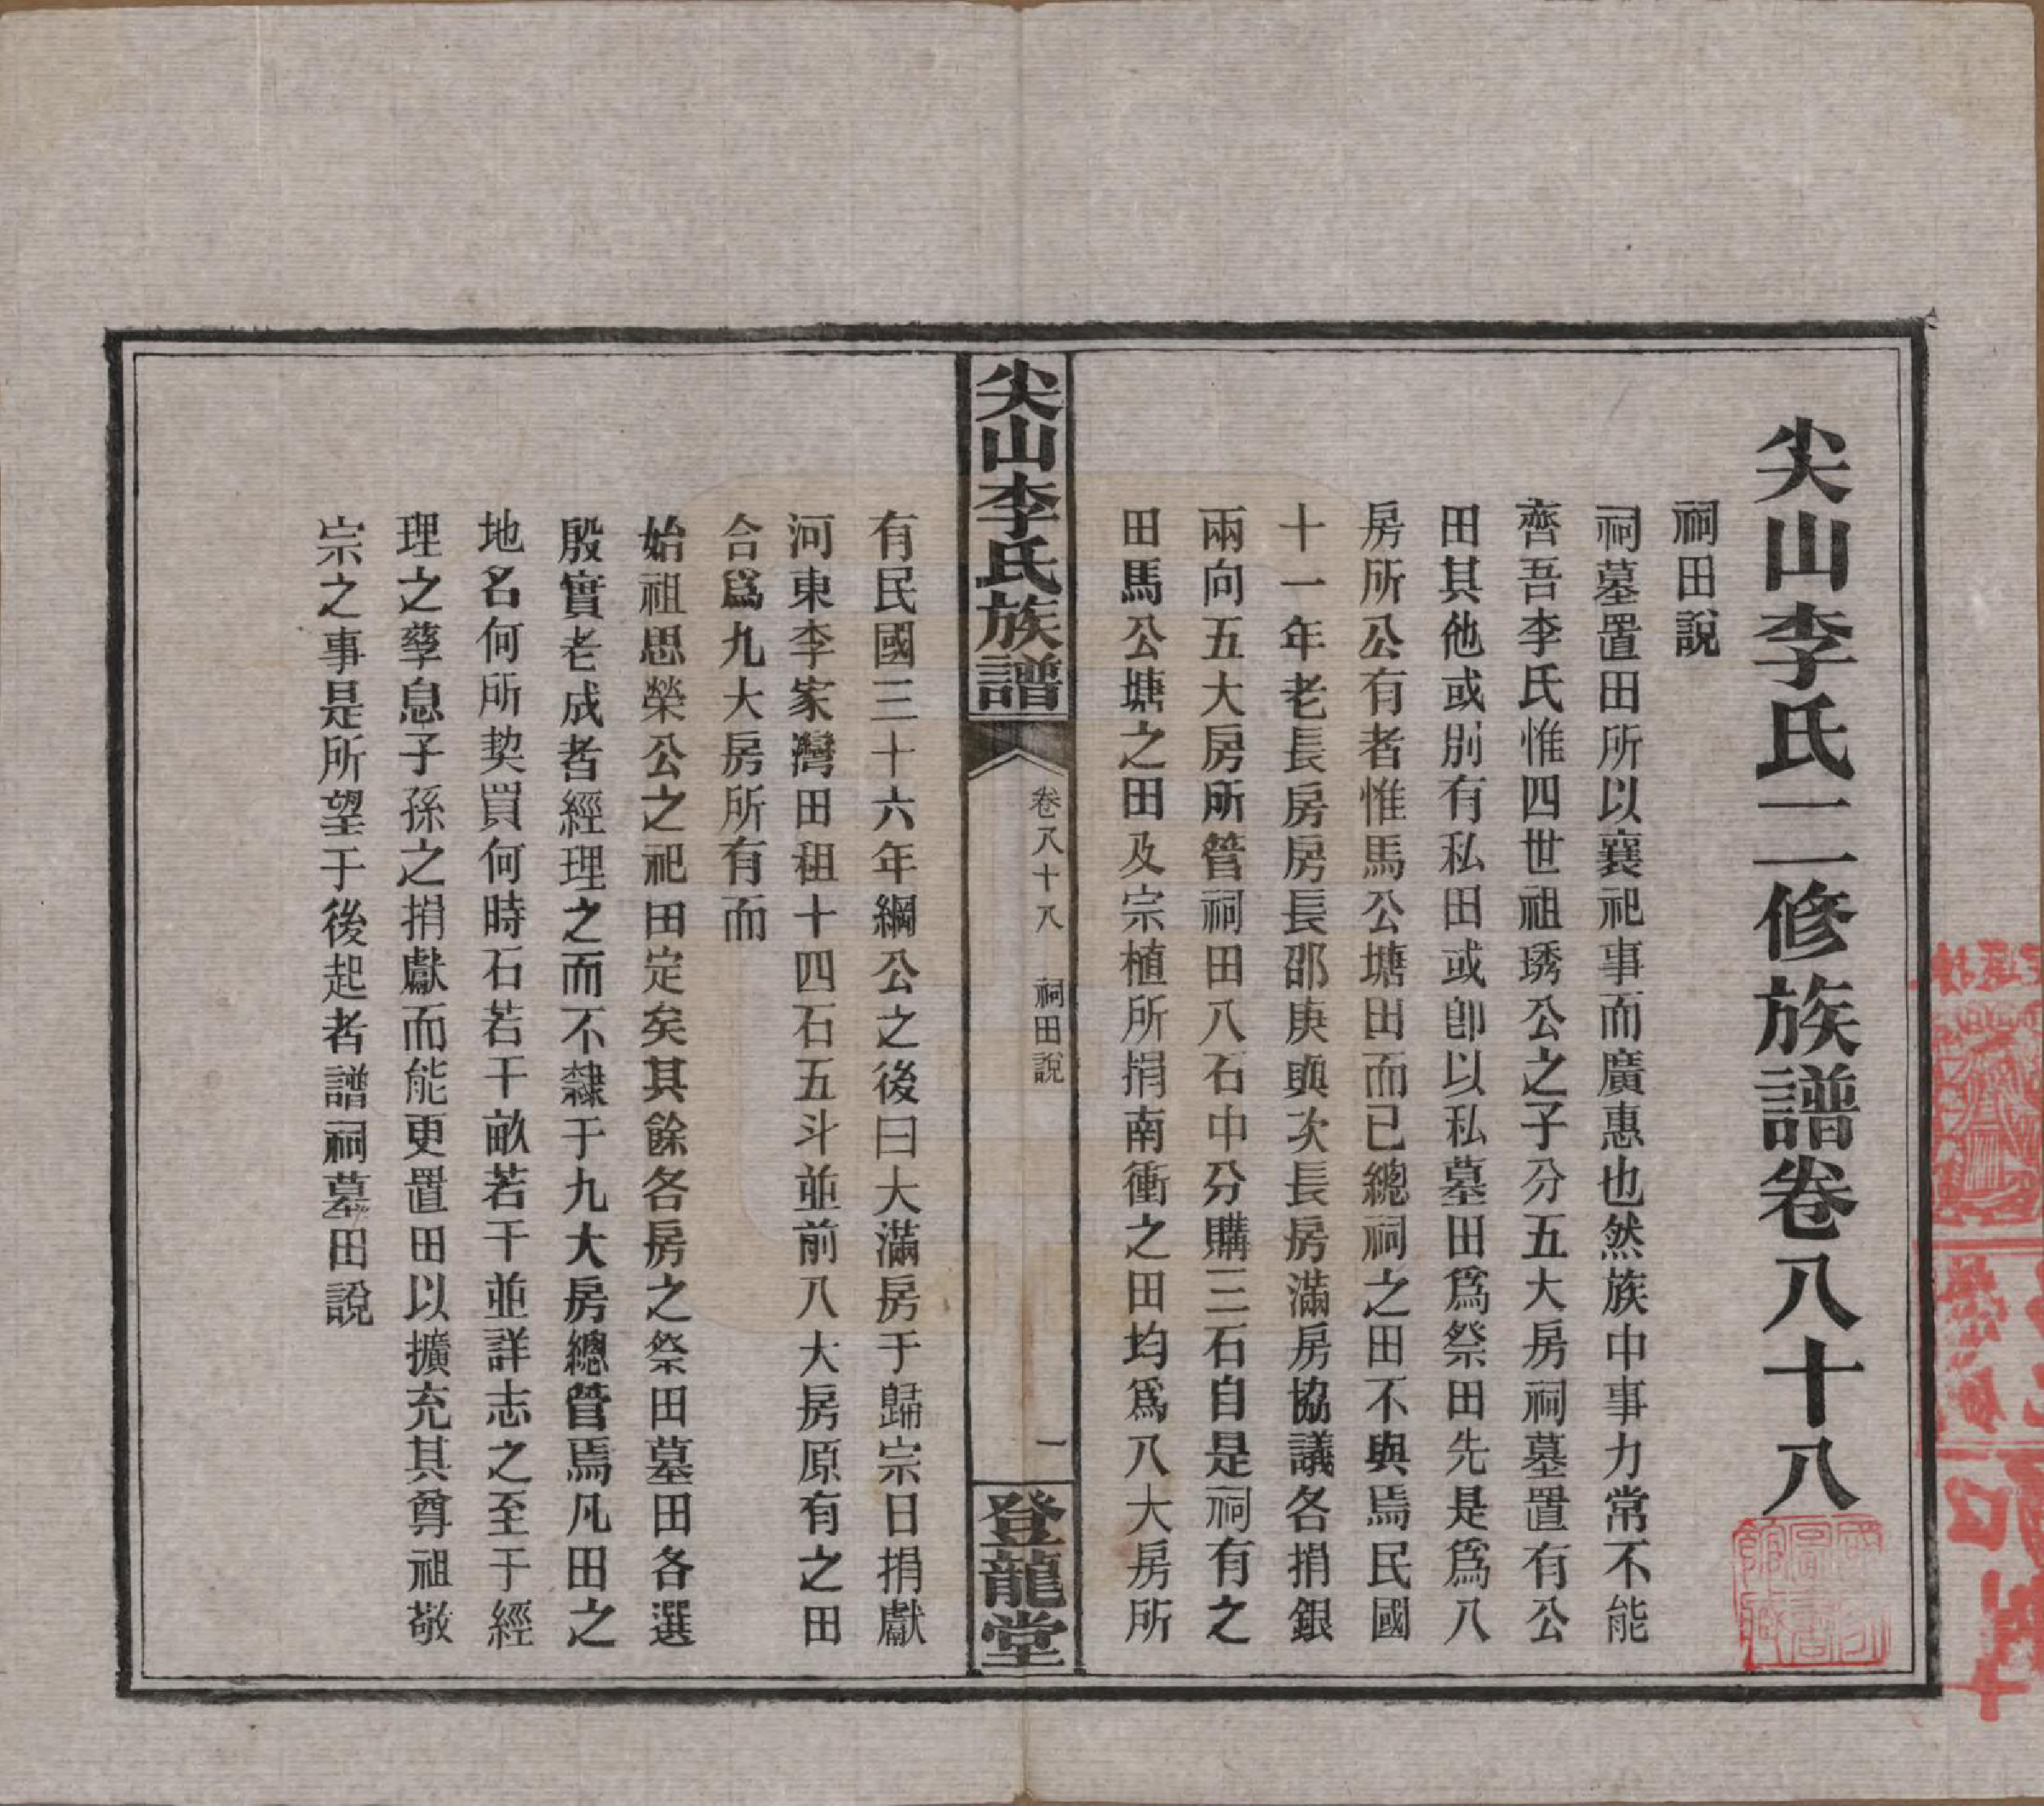 尖山李氏二修族譜卷八十八
祠田說
祠墓置田所以襄祀事而廣惠也然族中事力常不能
齊吾李氏惟四世祖琇公之子分五大房祠墓置有公
田其他或別有私田或卽以私墓田爲祭田先是爲八
房所公有者惟馬公塘田而已總祠之田不與焉民國
十一年老長房房長邵庚與次長房滿房協議各捐銀
兩向五大房所管祠田八石中分購三石自是祠有之
田馬公塘之田及宗植所捐南衝之田均爲八大房所
尖山李氏族譜
卷八十八 祠田說
一
登龍堂
有民國三十六年綱公之後曰大滿房于歸宗日捐獻
河東李家灣田租十四石五斗並前八大房原有之田
合爲九大房所有而
始祖思榮公之祀田定矣其餘各房之祭田墓田各選
殷實老成者經理之而不隸于九大房總管焉凡田之
地名何所契買何時石若干畝若干並詳志之至于經
理之孳息子孫之捐獻而能更置田以擴充其尊祖敬
宗之事是所望于後起者譜祠墓田說